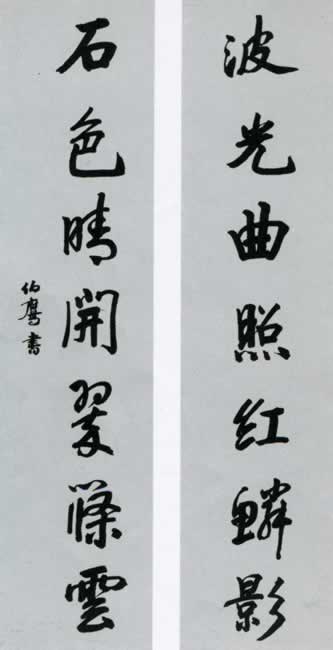 波光曲照紅鱗影
石色晴開翠篠雲
伯鷹書